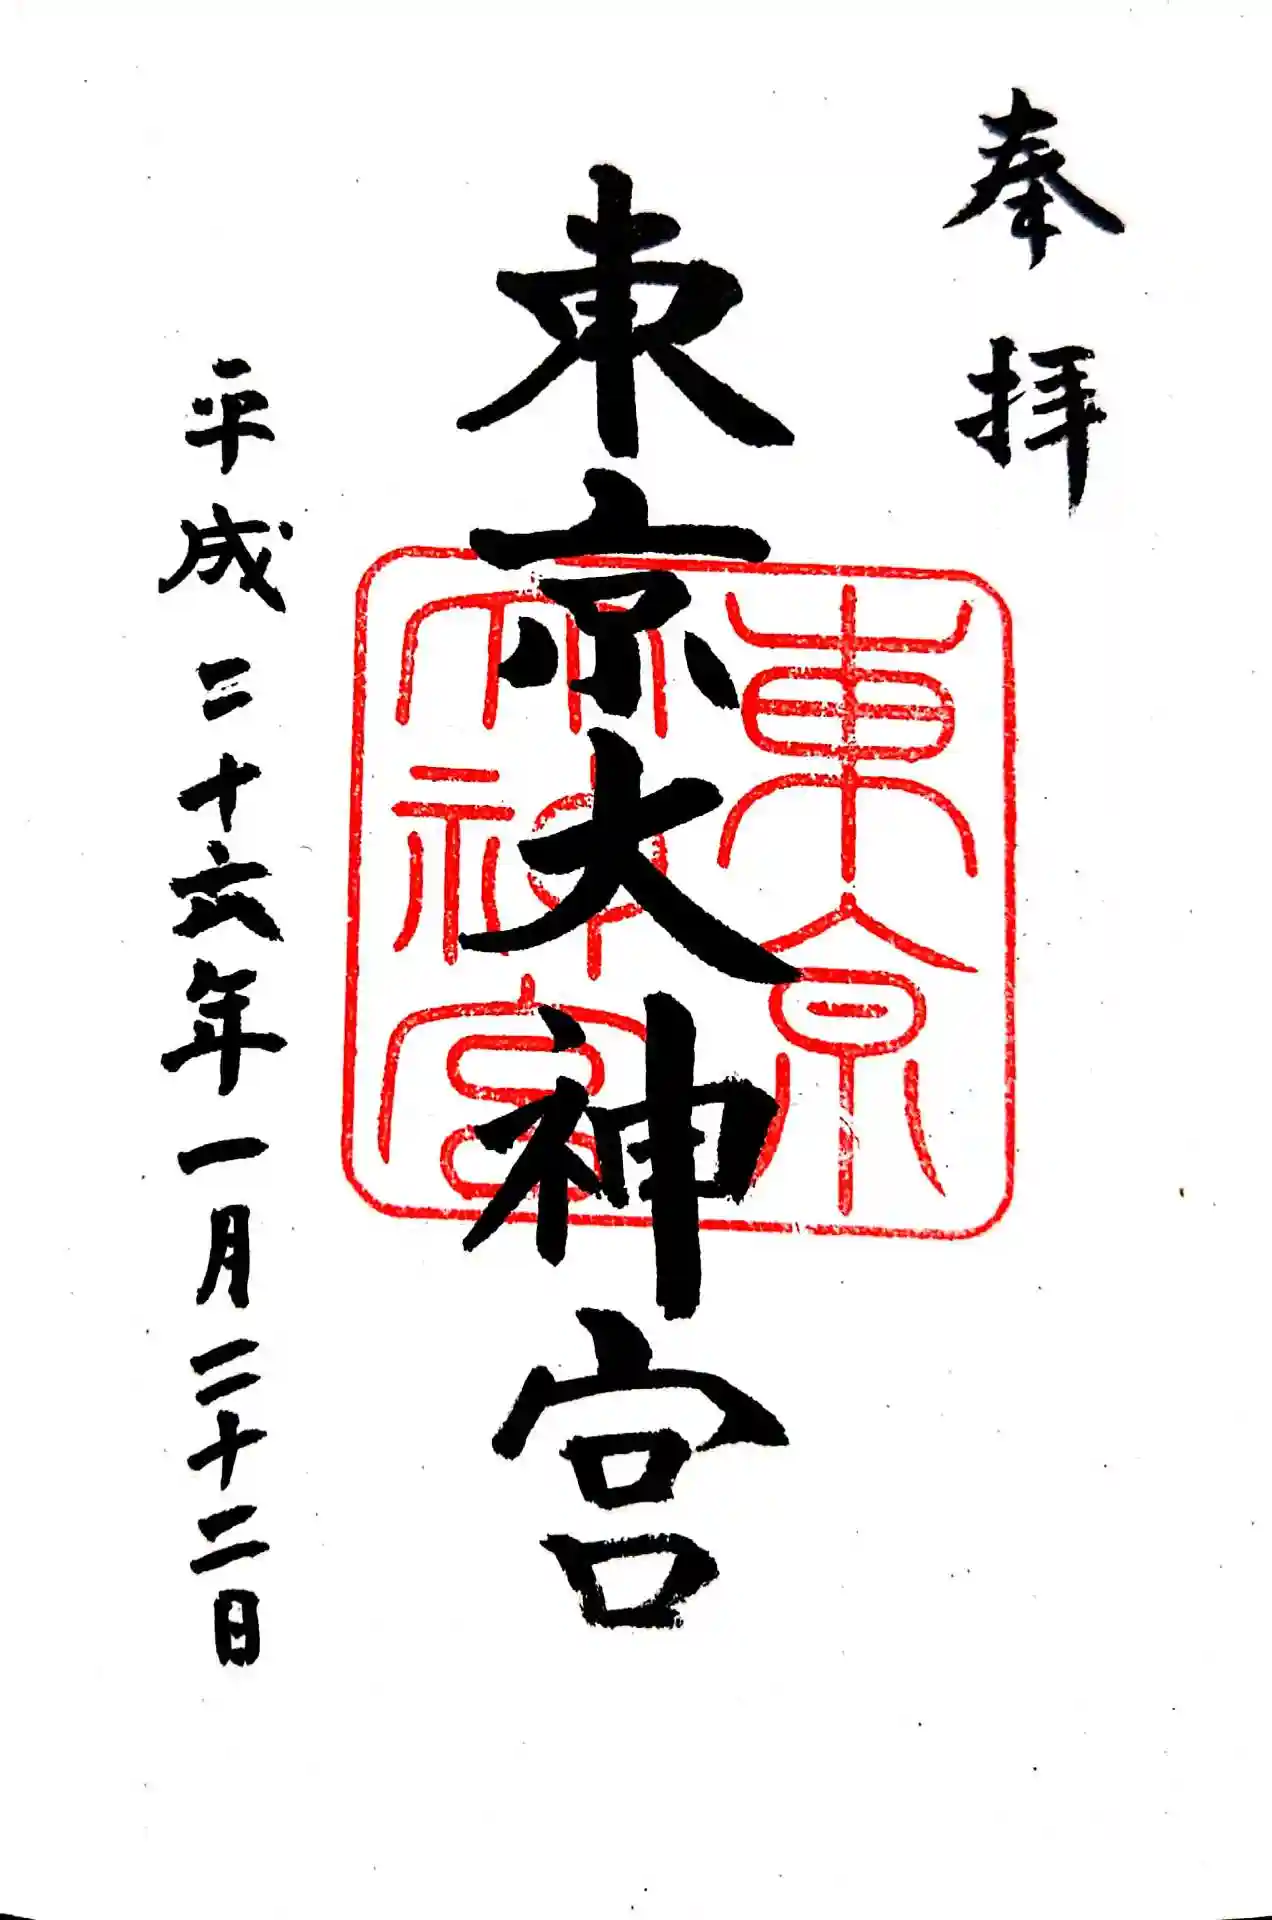 奉拝
東京大神宮
東京
大神宮
平成二十六年一月二十二日